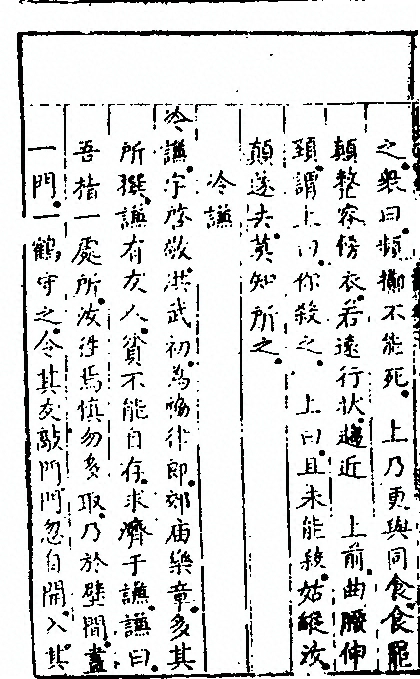 之衆曰頻擲不能死　上乃更與同食食罷
顛整容傍衣若遠行状趨近　上前曲腰伸
頸謂上曰你殺之　上曰且未能殺姑縱汝
顛遂去莫知所之
冷謙
冷謙字啓敬洪武初為協律郎郊庙樂章多其
所撰謙有友人貧不能自存求濟于謙謙曰
吾指一處所汝徃焉慎勿多取乃於壁間畫
一門一鶴守之令其友敲門門忽自開入其